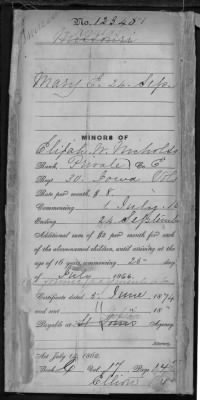 No. 123401
Missouri
Mary E. 24 Sep.
MINORS OF
Elijah W. Nichols
Rank, Private Co. E
Regt. 30. Iowa Vols
Rate per month, $8.
Commencing 1 July
Ending 24 September
Additional sum of $2 per month for each
of the abovenamed children, until arriving at the
age of 16 years, commencing 25 day
of July 1866.
Certificate dated 5 June 1874
and sent 187
Payable at St Louis Agency.
Attorney.
Act July 14, 1862.
Book G Vol. 17 Page 14